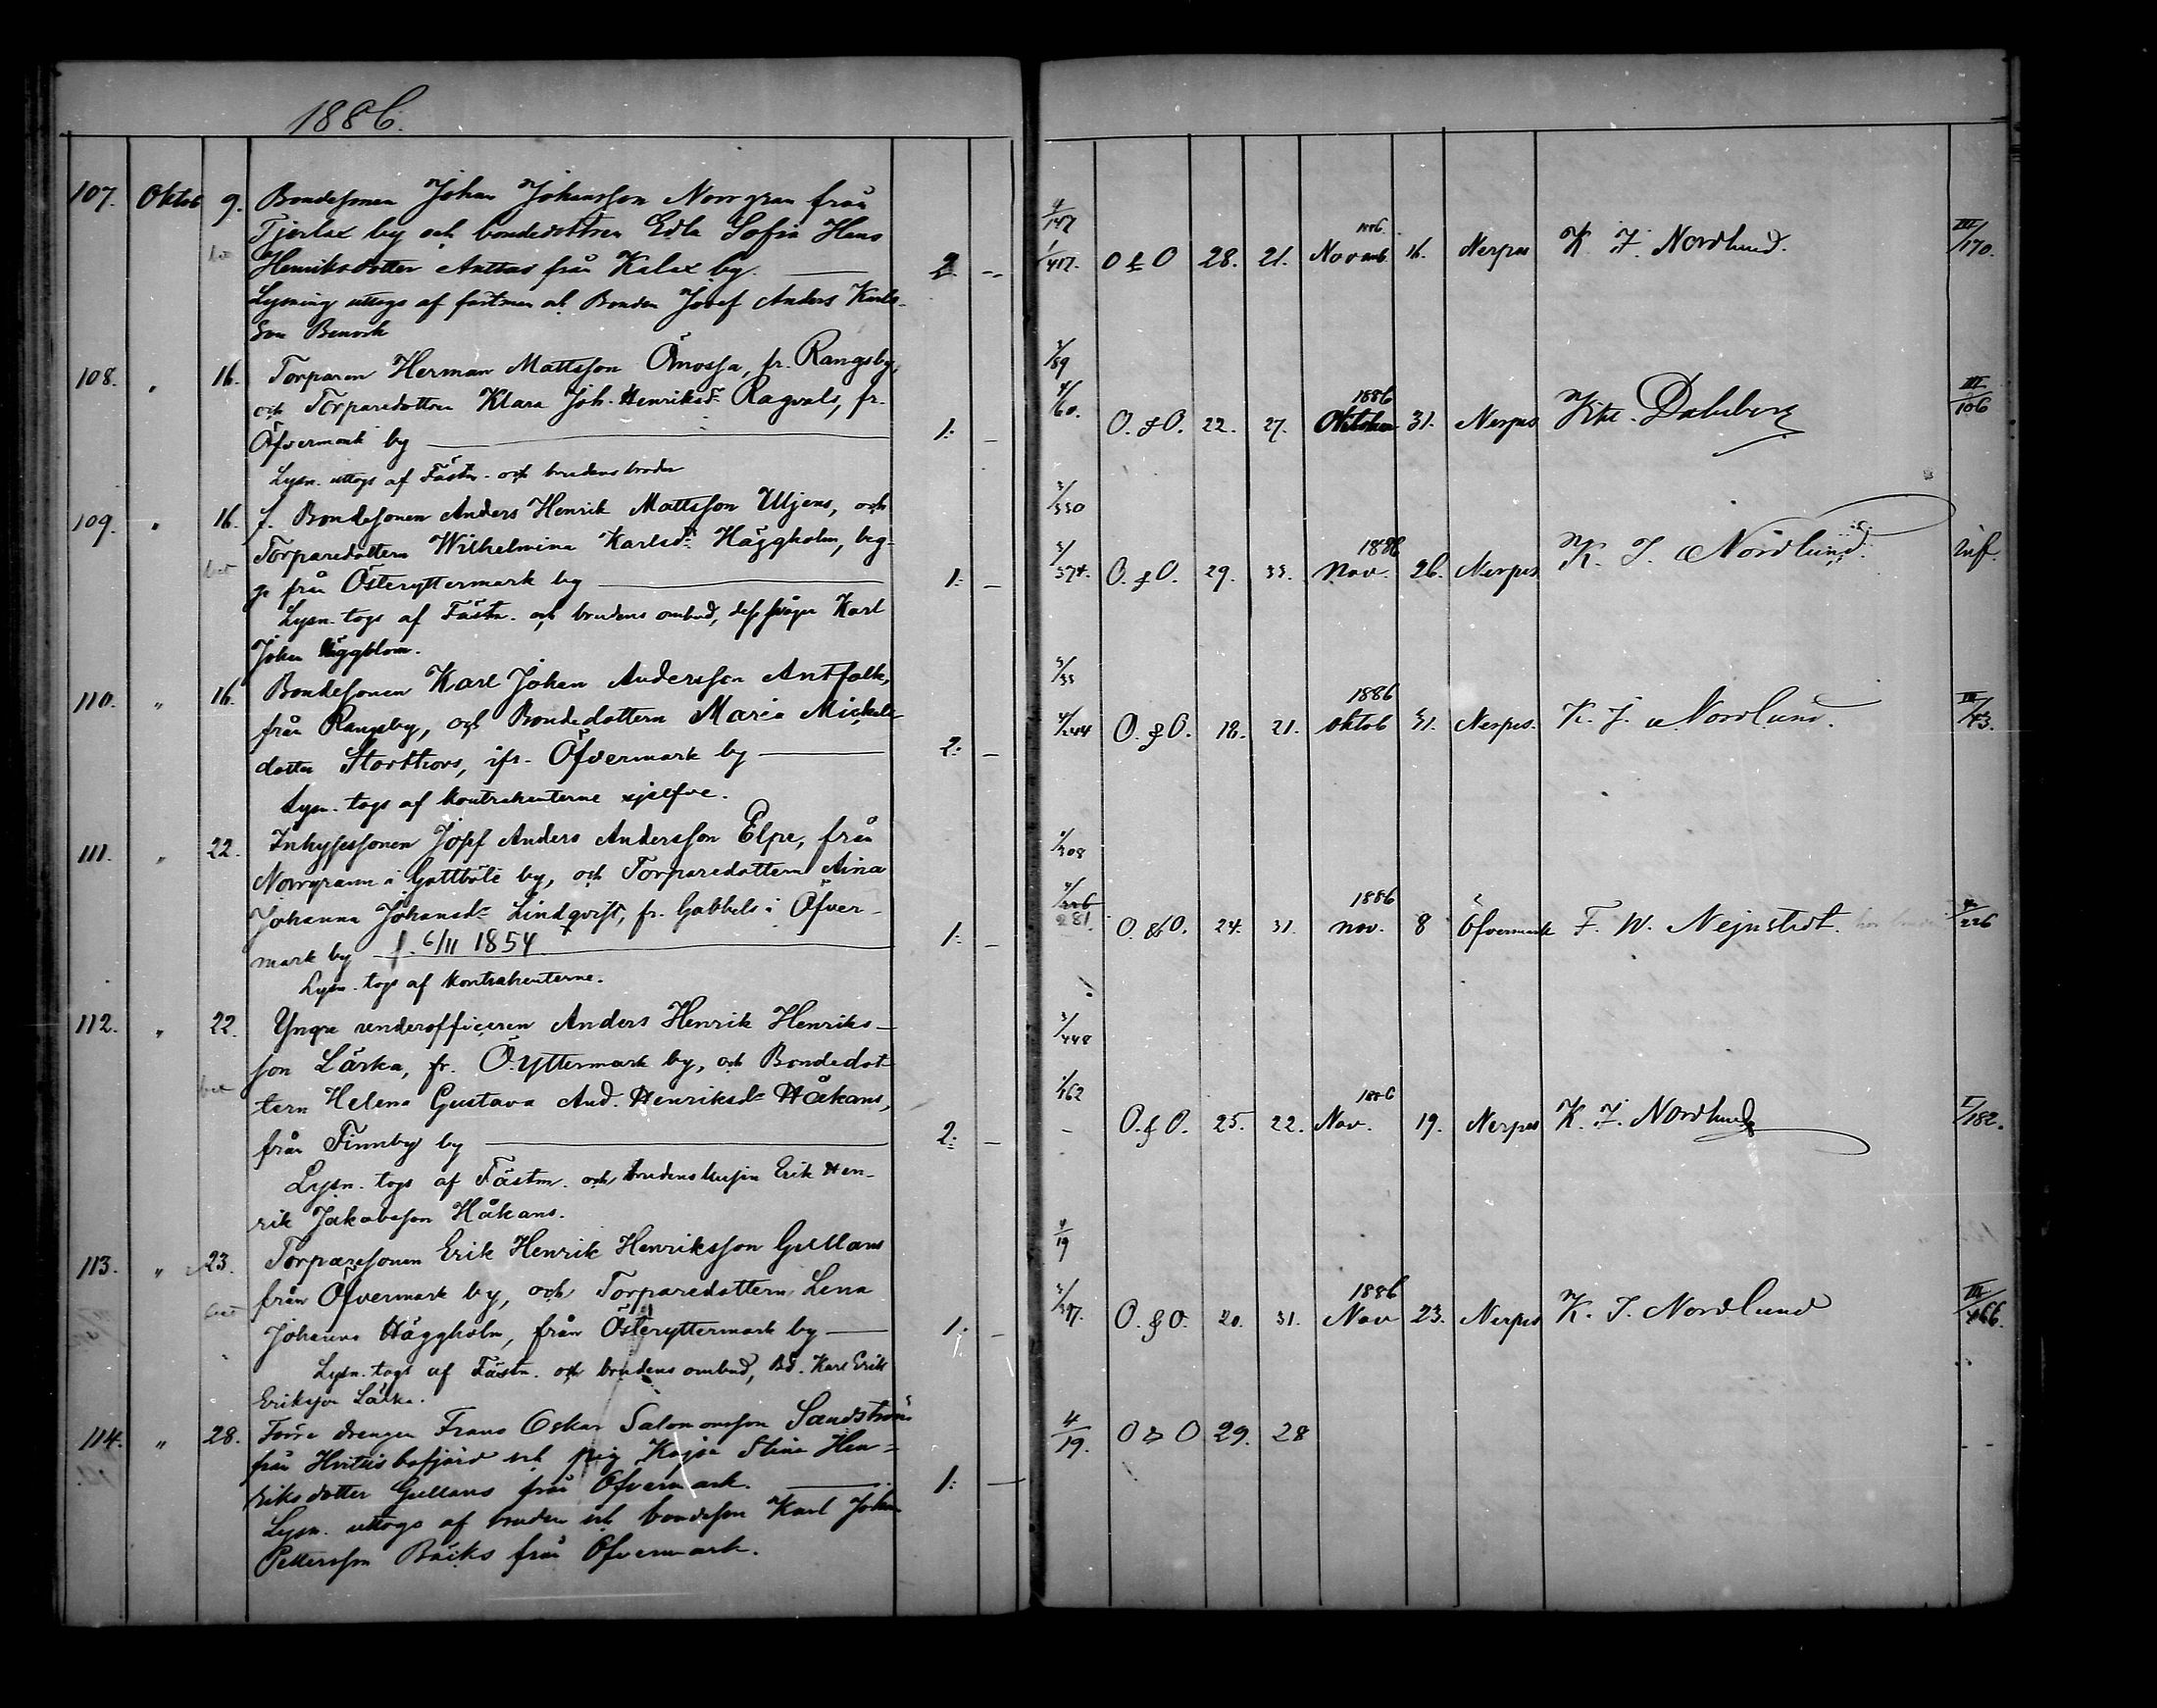 1886.
107. Oktob 9. Bondesonen Johan Johansson Norrgran från
Tjerlax by och bondedottren Edla Sofia Hans
Henriksdotter Anttas från Kalax by. 2. --
Lysning uttogs af fästman och Bonden Josef Anders Karls-
son
108. " 16. Torparen Herman Mattsson Ömossa, fr. Rangsby,
och Torparedottren Klara Joh. Henriksd:r Ragvals, fr.
Öfvermark by 1: -
Lysn. uttogs af Fästm. och brudens broder
109. " 16. f. Bondesonen Anders Henrik Mattsson Uljens, och
Torparedottern Wilhelmina Karlsd:r Häggholm, beg-
ge från Österyttermark by 1: -
Lysn. togs af Fästm. och brudens ombud, dess svåger Karl
Johan Häggblom.
110. " 16. Bondesonen Karl Johan Andersson Antfolk,
från Rangsby, och Bondedottern Maria Mickels-
dotter Storthors, ifr. Öfvermark by 2: -
Lysn. togs af kontrahenterne sjelfve.
111. " 22. Inhysessonen Josef Anders Andersson Elpe, från
Norrgrann i Gottböle by, och Torparedottern Aina
Johanna Johansd:r Lindqvist, fr. Gabbels i Öfver-
mark by f. 6/11 1854 1: -
Lysn. togs af kontrahenterne.
112. " 22. Yngre underofficeren Anders Henrik Henriks-
son Lärka, fr. Ö.yttermark by, och Bondedot-
tern Helena Gustava And. Henriksd:r Håkans,
från Finnby by 2: -
Lysn. togs af Fästm. och brudens kusin Erik Hen-
rik Jakobsson Håkans.
113. " 23. Torparesonen Erik Henrik Henriksson Gullans
från Öfvermark by, och Torparedottern Lena
Johanna Häggholm, från Österyttermark by 1. -
Lysn. togs af Fästm. och brudens ombud, Bd. Karl Erik
Eriksson Lärka.
114. " 28. Förre drengen Frans Oskar Salomonsson Sandström
från Hvittisbofjärd och pig. Kajsa Stina Hen-
riksdotter Gullans från Öfvermark. 1: -
Lysn. uttogs af bruden och bondeson Karl Johan
Pettersson Bäcks från Öfvermark.
4/147
1/417. O & O 28. 21. 1886. Novemb 16. Nerpes K. J. Nordlund. III/170.
3/59
4/60. O. & O. 22. 27. 1886 Oktober 31. Nerpes Dahlberg III/106
3/330
3/374. O. & O. 29. 33. 1886 Nov. 26. Nerpes K. J. Nordlund. inf.
3/33
4/244 O. & O. 18. 21. 1886 Oktob 31. Nerpes. K. J. Nordlund. III/43.
1/308
4/226
281. O. & O. 24. 31. 1886 Nov. 8 Öfvermark F. W. Nejnstedt. 4/226
3/448
1/162
- O. & O. 25. 22. 1886 Nov. 19. Nerpes K. J. Nordlund I/182.
4/19
3/397. O. & O. 20. 31. 1886 Nov 23. Nerpes K. J. Nordlund III/466.
4/19. O & O 29. 28 - -